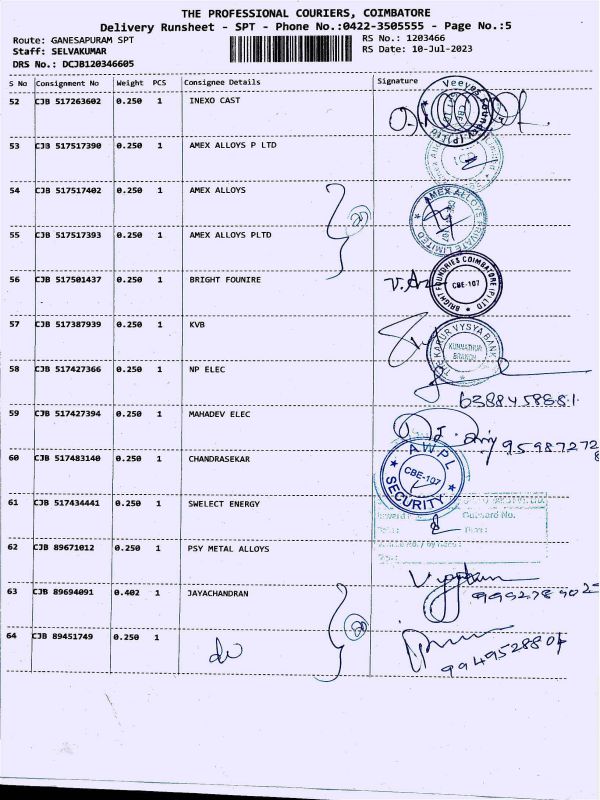 THE PROFESSIONAL COURIERS, COIMBATORE
Delivery Runsheet - SPT - Phone No.:0422-3505555 - Page No.:5
Route: GANESAPURAM SPT
RS No.: 1203466
Staff: SELVAKUMAR
RS Date: 10-Jul-2023
DRS No.: DCJB120346605
S No Consignment No Weight PCS Consignee Details Signature
52 CJB 517263602 0.250 1 INEXO CAST
53 CJB 517517390 0.250 1 AMEX ALLOYS P LTD
54 CJB 517517402 0.250 1 AMEX ALLOYS
AMEX ALLOYS PRIVATE LIMITED
55 CJB 517517393 0.250 1 AMEX ALLOYS PLTD
56 CJB 517501437 0.250 1 BRIGHT FOUNIRE
BRIGHT FOUNDRIES COIMBATORE (P) LTD
CBE-107
57 CJB 517387939 0.250 1 KVB
THE KARUR VYSYA BANK
KUNNATHUR
BRANCH
58 CJB 517427366 0.250 1 NP ELEC
6388458881
59 CJB 517427394 0.250 1 MAHADEV ELEC
95987272
60 CJB 517483140 0.250 1 CHANDRASEKAR
A.W.P.L
CBE-107
SECURITY
61 CJB 517434441 0.250 1 SWELECT ENERGY
Outward No.
62 CJB 89671012 0.250 1 PSY METAL ALLOYS
63 CJB 89694091 0.402 1 JAYACHANDRAN
64 CJB 89451749 0.250 1
do